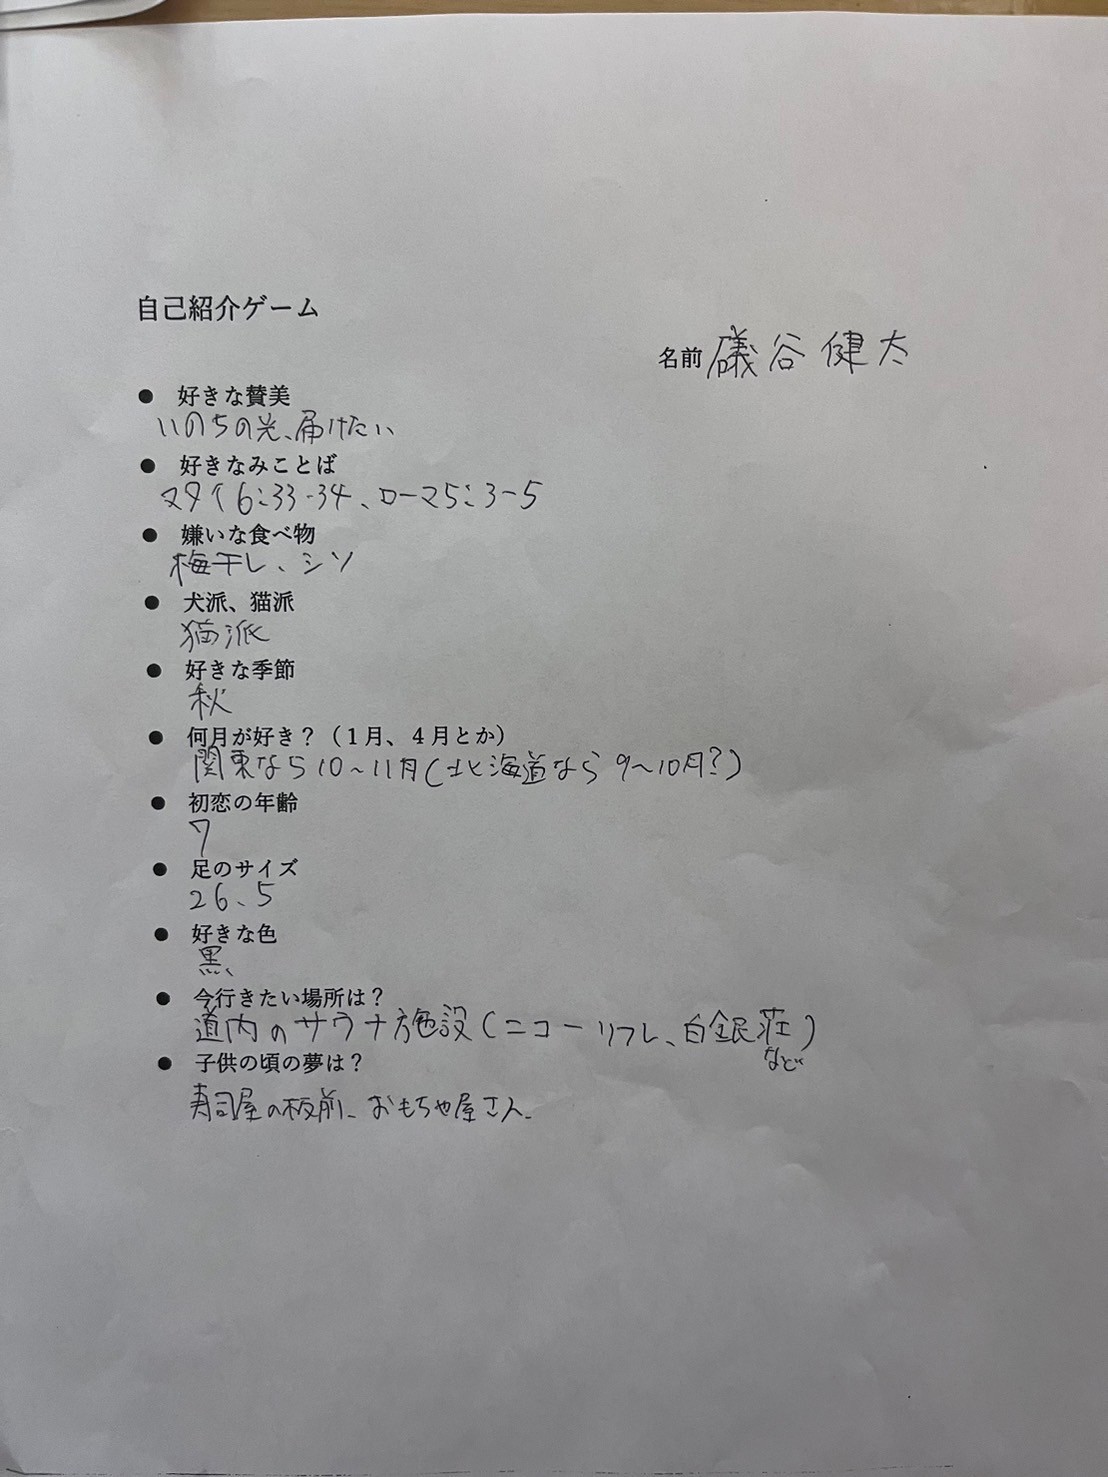 自己紹介ゲーム
名前 礒谷 健太
● 好きな賛美
いのちの光、届けたい
● 好きなみことば
マタイ6:33-34、ローマ5:3-5
● 嫌いな食べ物
梅干し、シソ
● 犬派、猫派
猫派
● 好きな季節
秋
● 何月が好き？（1月、4月とか）
関東なら10~11月(北海道なら9~10月?)
● 初恋の年齢
7
● 足のサイズ
26、5
● 好きな色
黒、
● 今行きたい場所は？
道内のサウナ施設(ニコーリフレ、白金民荘)
など
● 子供の頃の夢は？
寿司屋の板前、おもちゃ屋さん、